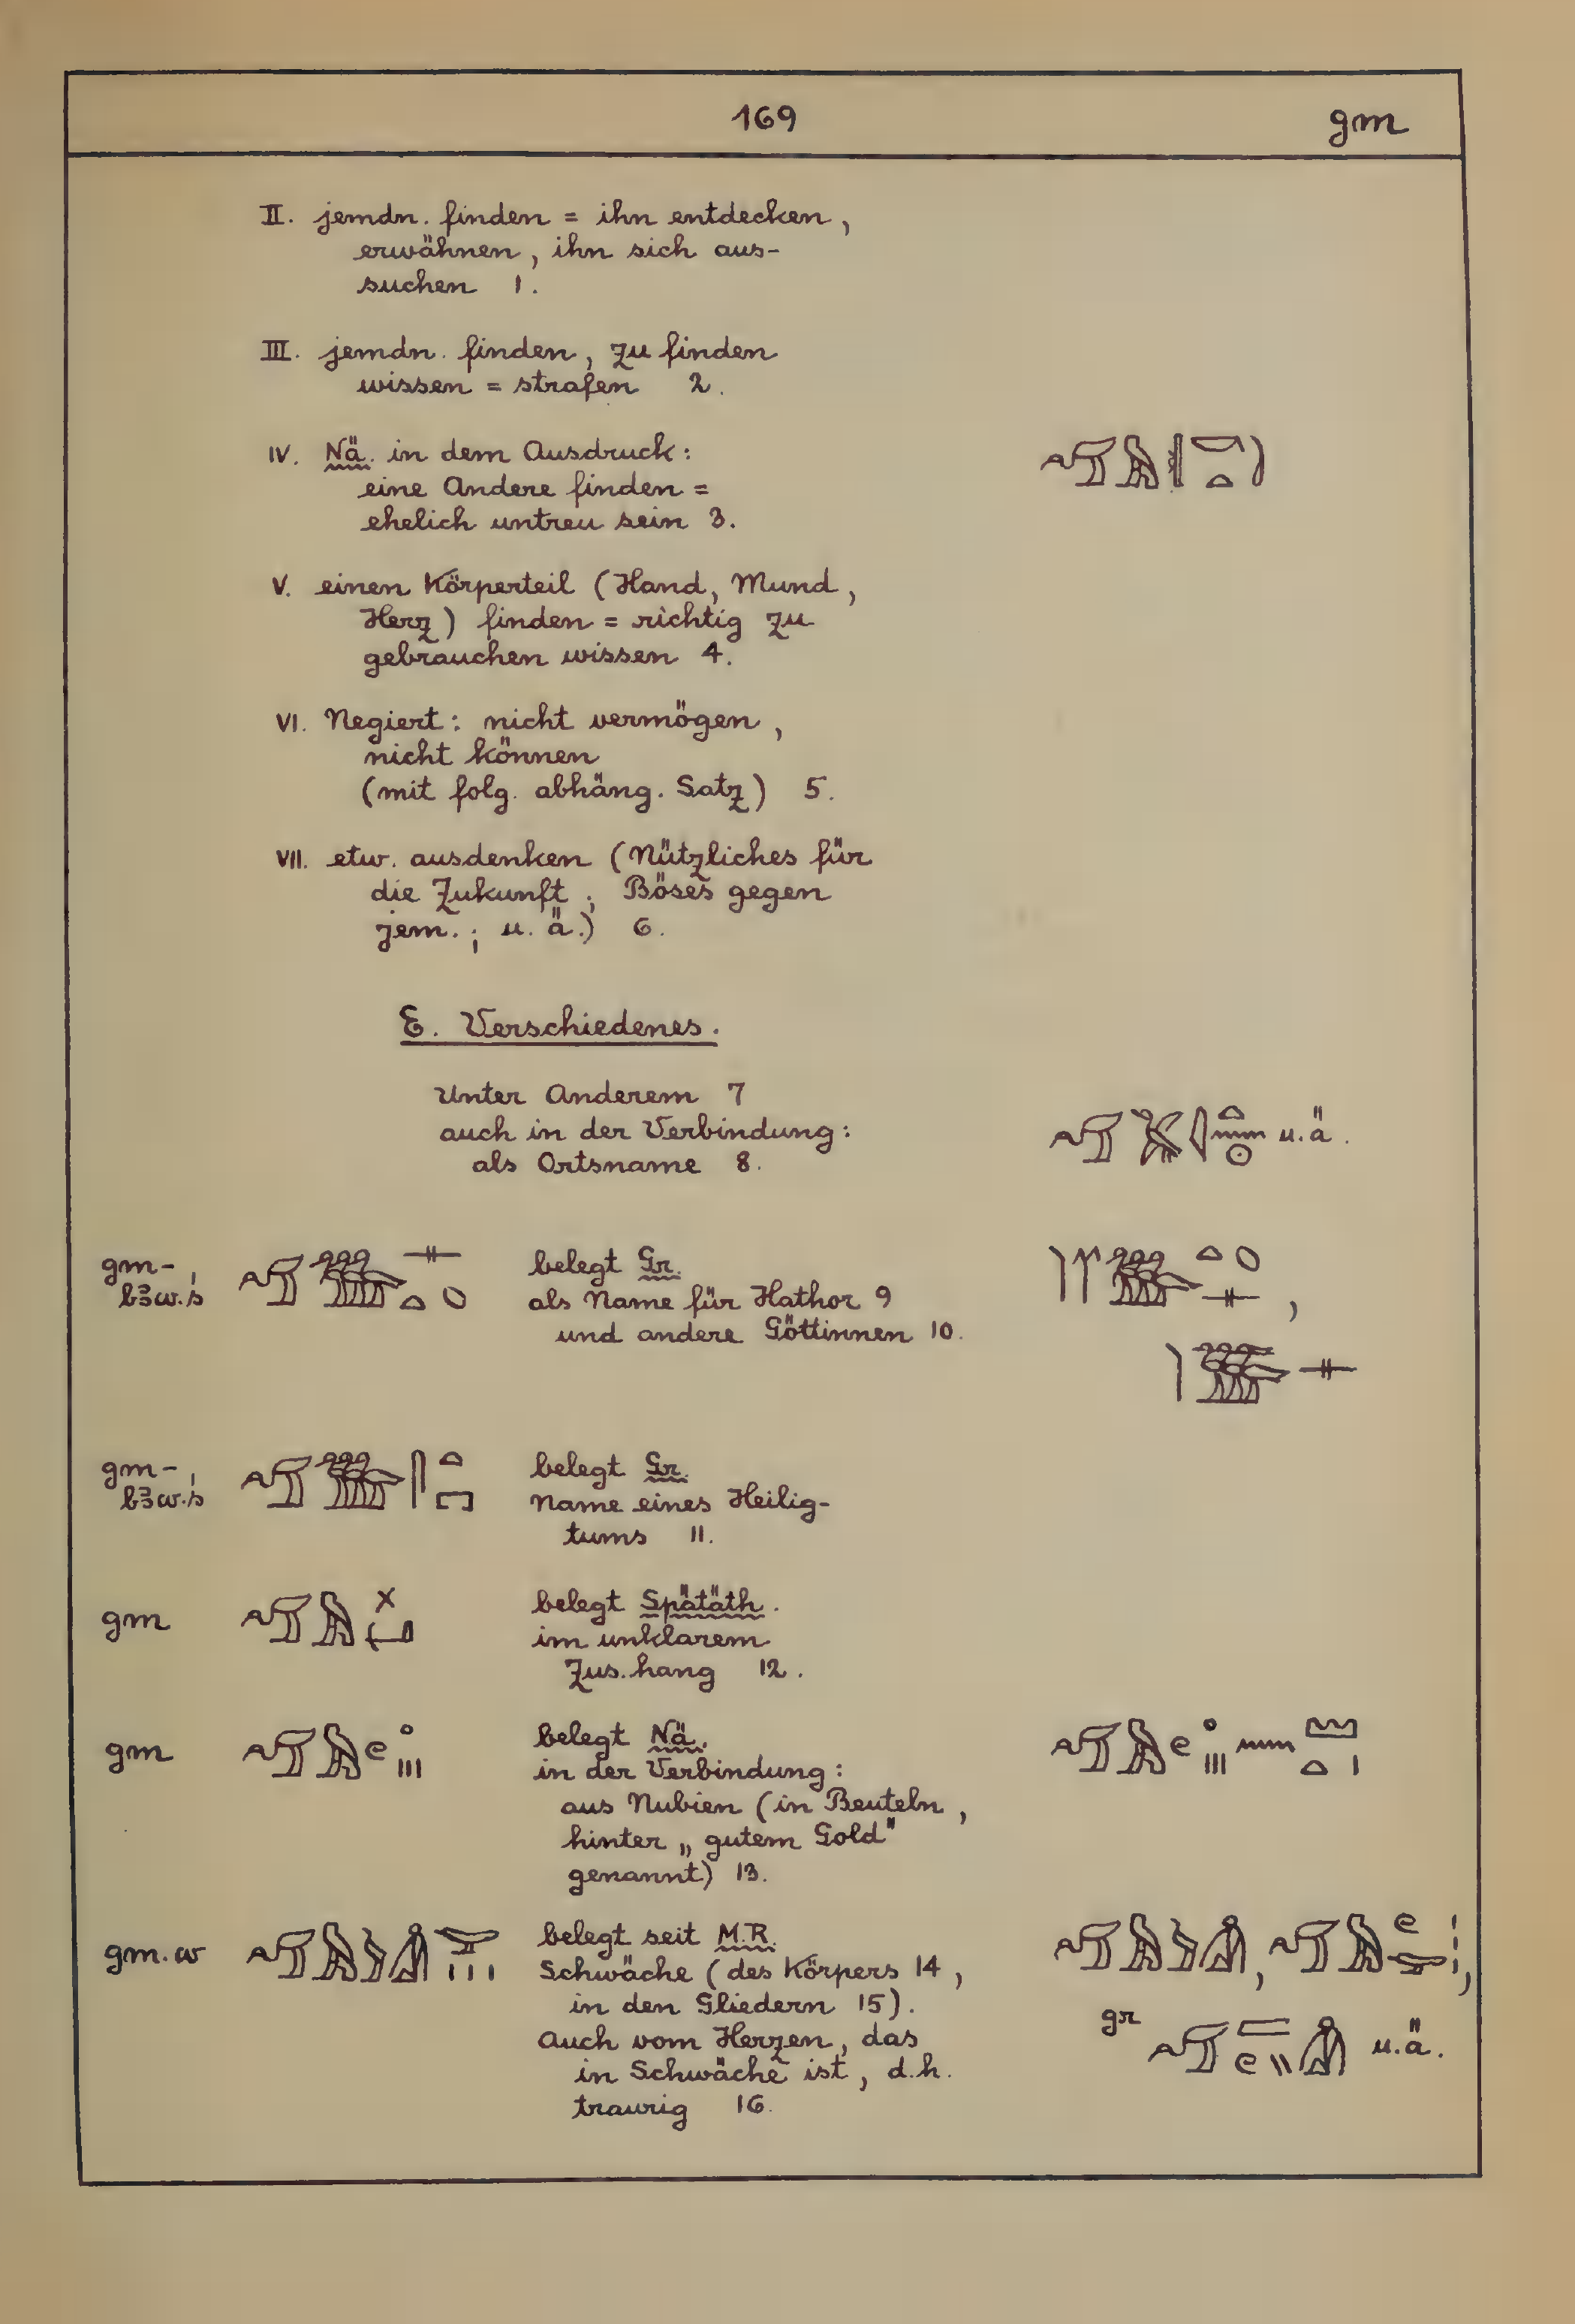 169 gm
II. jemdn. finden = ihn entdecken,
erwähnen, ihn sich aus-
suchen 1.
III. jemdn. finden, zu finden
wissen = strafen 2.
IV. Nä. in dem Ausdruck:
eine Andere finden =
ehelich untreu sein 3.
V. einen Körperteil (Hand, Mund,
Herz) finden = richtig zu
gebrauchen wissen 4.
VI. Negiert: nicht vermögen,
nicht können
(mit folg. abhäng. Satz) 5.
VII. etw. ausdenken (Nützliches für
die Zukunft; Böses gegen
jem.; u. ä.) 6.
E. Verschiedenes.
Unter Anderem 7
auch in der Verbindung: u. ä.
als Ortsname 8.
gm- belegt Gr.
bꜣw.ś als Name für Hathor 9
und andere Göttinnen 10.
gm- belegt Gr.
bꜣw.ś Name eines Heilig-
tums 11.
gm belegt Spätäth.
im unklarem
Zus.hang 12.
gm belegt Nä.
in der Verbindung:
aus Nubien (in Beuteln,
hinter „gutem Gold"
genannt) 13.
gm.w belegt seit M.R.
Schwäche (des Körpers 14,
in den Gliedern 15).
Auch vom Herzen, das gr u. ä.
in Schwäche ist, d.h.
traurig 16.